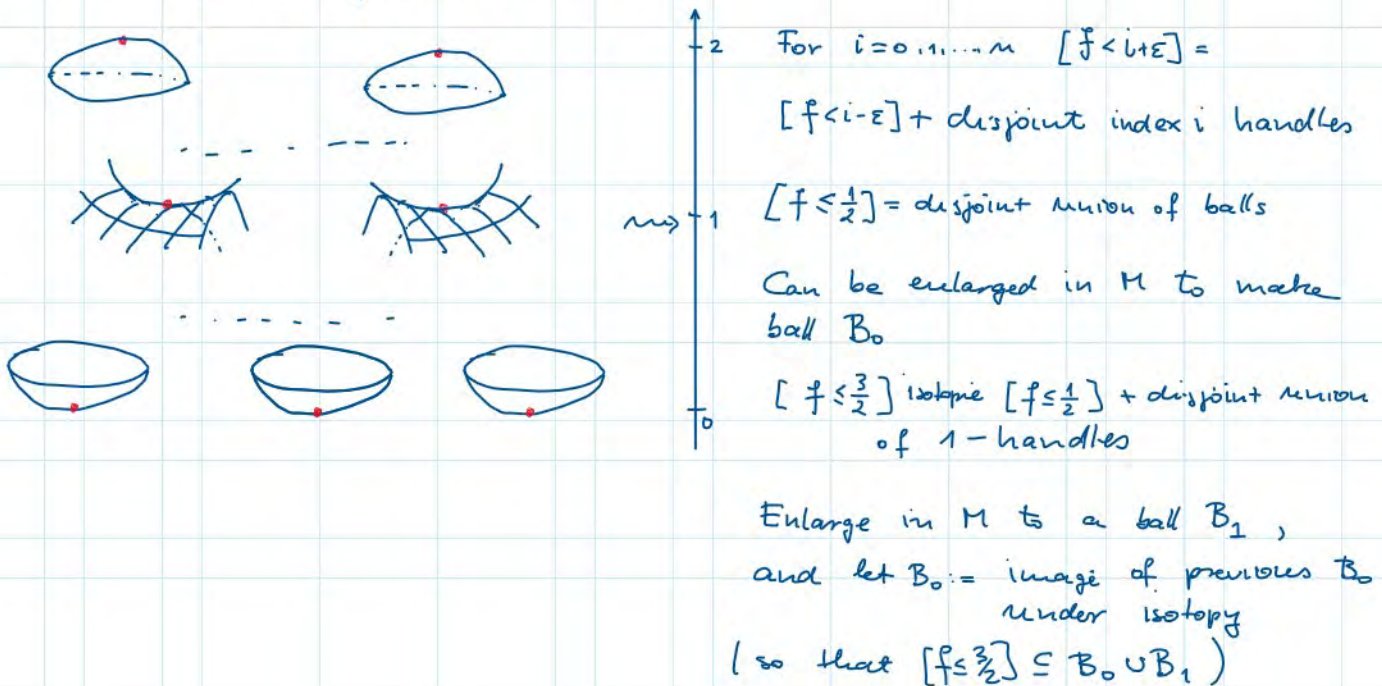 2
1
0
For i=0,1,...n [f<i+ε] =
[f<i-ε] + disjoint index i handles
[f≤½] = disjoint union of balls
Can be enlarged in M to make
ball B₀
[f≤3/2] isotopic [f≤½] + disjoint union
of 1-handles
Enlarge in M to a ball B₁,
and let B₀ := image of previous B₀
under isotopy
(so that [f≤3/2] ⊆ B₀∪B₁)